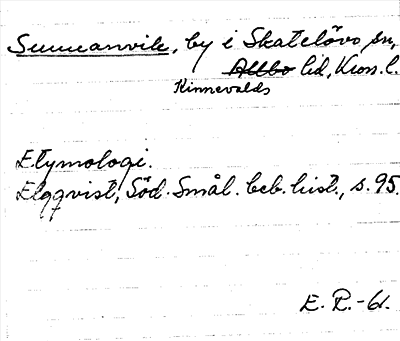 Sunnanvik, by i Skatelövs sn,
Allbo hd, Kron. l.
Kinnevalds
Etymologi.
Elgqvist, Söd. Smål. beb. hist., s. 95.
E. R. -61.